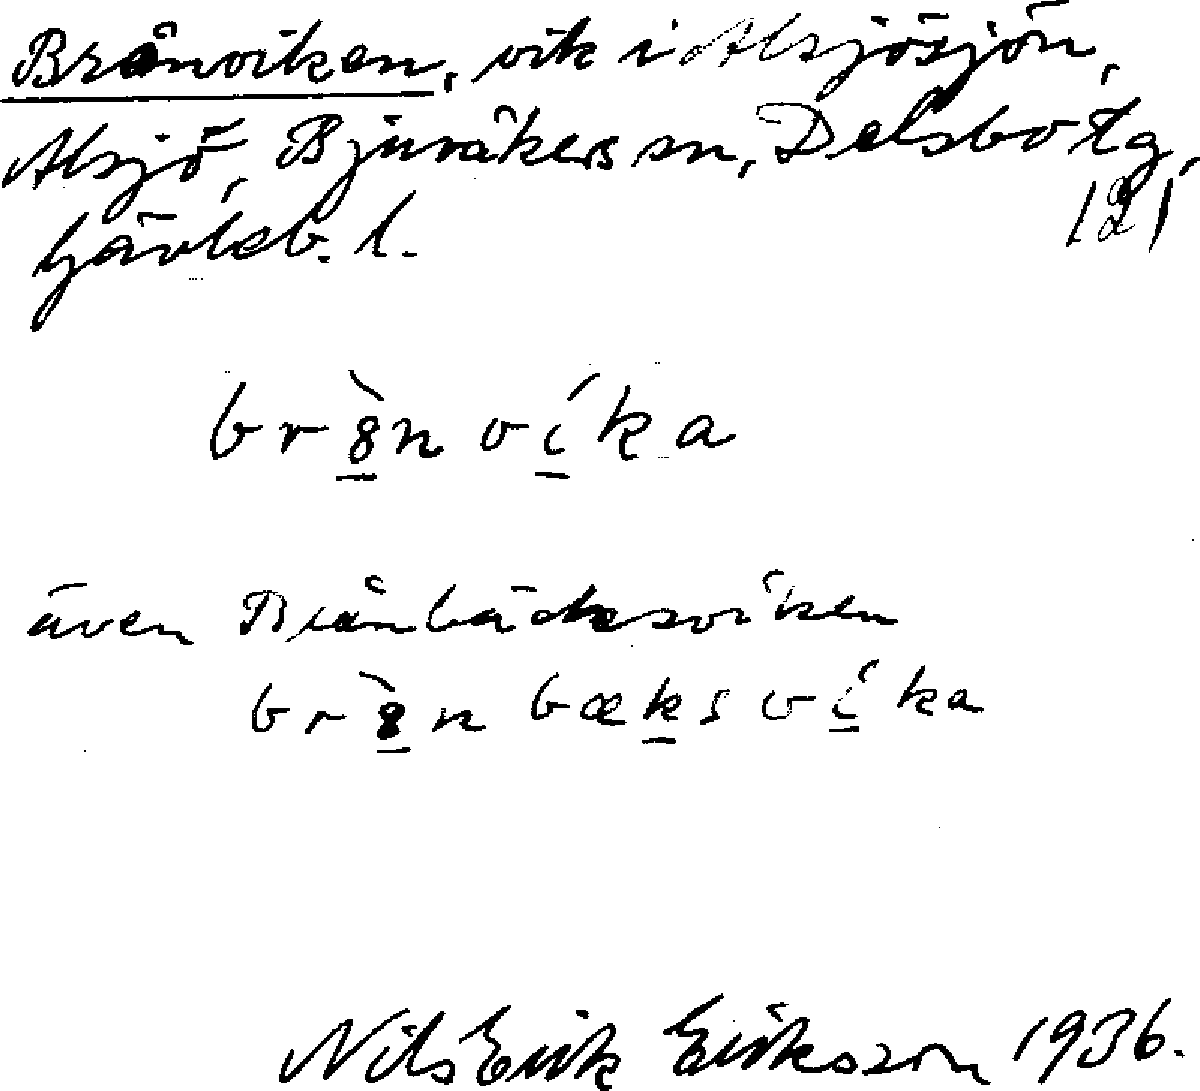 Brånviken, vik i Alsjösjön,
Alsjö, Bjuråkers sn, Delsbo tg,
Gävleb. l.
121
br8̀n víka
även Brånbäcksviken
br8̀n bæksvíka
Nils Erik Eriksson 1936.